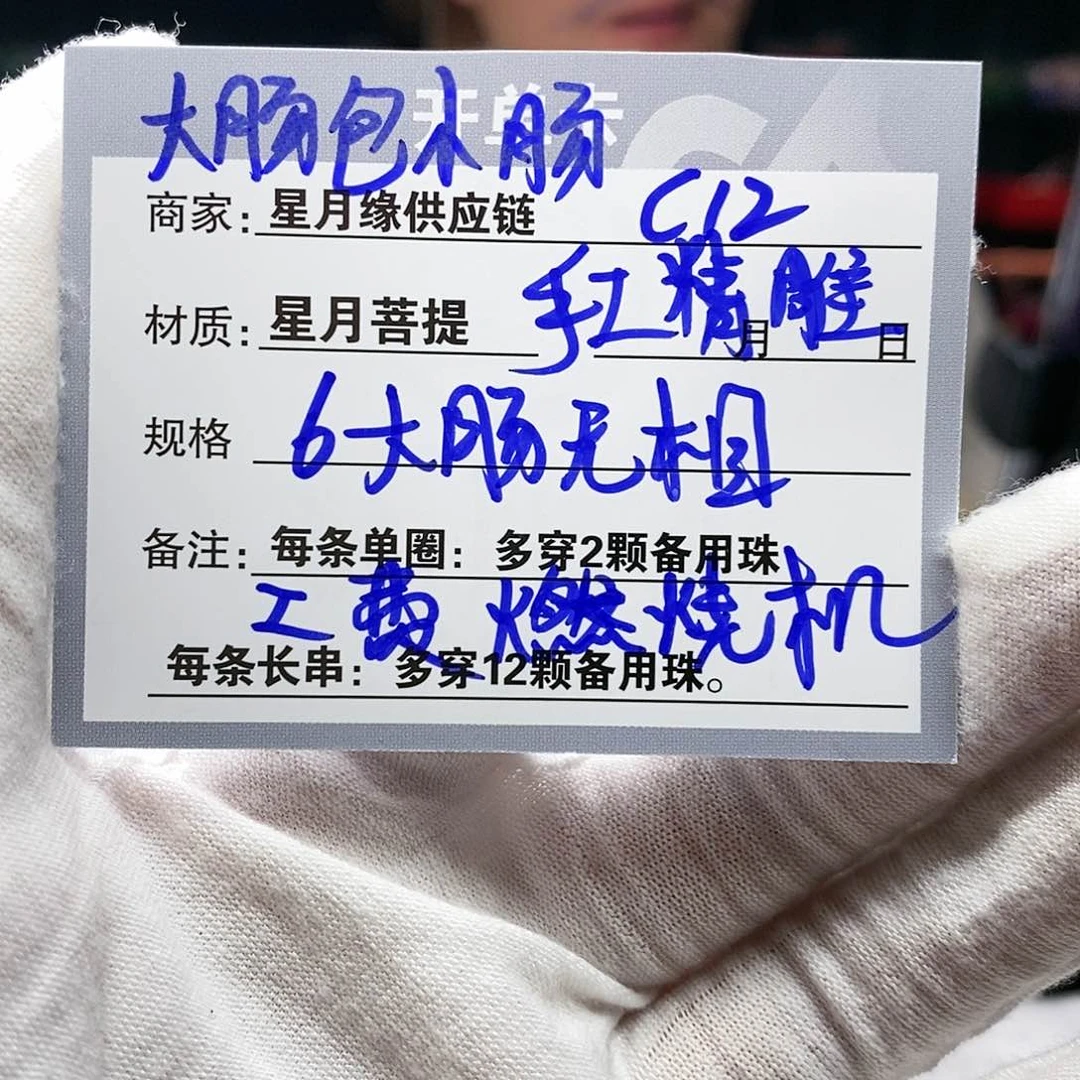 开单示
大肠包小肠
商家：星月缘供应链 C12
材质：星月菩提 手工精雕 月 日
规格 6大肠无相
备注：每条单圈：多穿2颗备用珠
工费燃烧机
每条长串：多穿12颗备用珠。